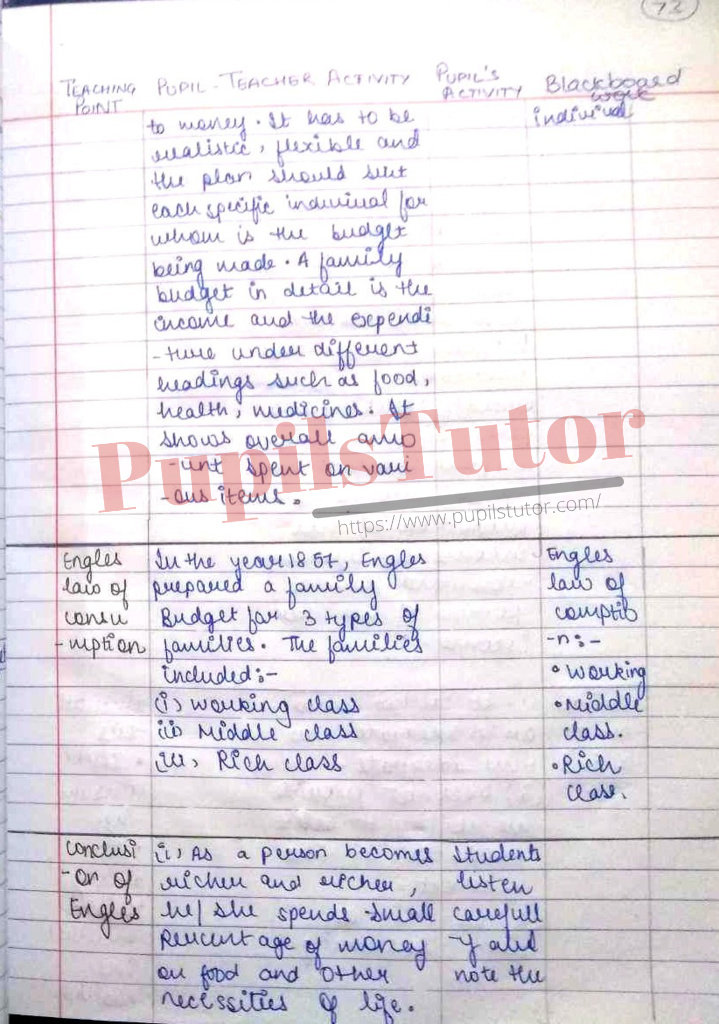 TEACHING POINT
PUPIL-TEACHER ACTIVITY
PUPIL'S ACTIVITY
Blackboard work
to money. It has to be
realistic, flexible and
the plan should suit
each specific indiviual for
whom is the budget
being made. A family
budget in detail is the
income and the expendi
-ture under different
headings such as food,
health, medicines. It
shows overall amo
-unt spent on vari
-ous items.
indiviual
PupilsTutor
https://www.pupilstutor.com/
Engles
law of
consu
-mption
In the year 1857, Engles
prepared a family
Budget for 3 types of
families. The families
included:-
(i) working class
(ii) Middle class
(iii) Rich class
Engles
law of
comptio
-n:-
• working
• Middle
class.
• Rich
class.
Conclusi
-on of
Engles
(i) As a person becomes
richer and richer,
he/she spends small
Percentage of money
on food and other
necessities of life.
Students
listen
carefull
-y and
note the